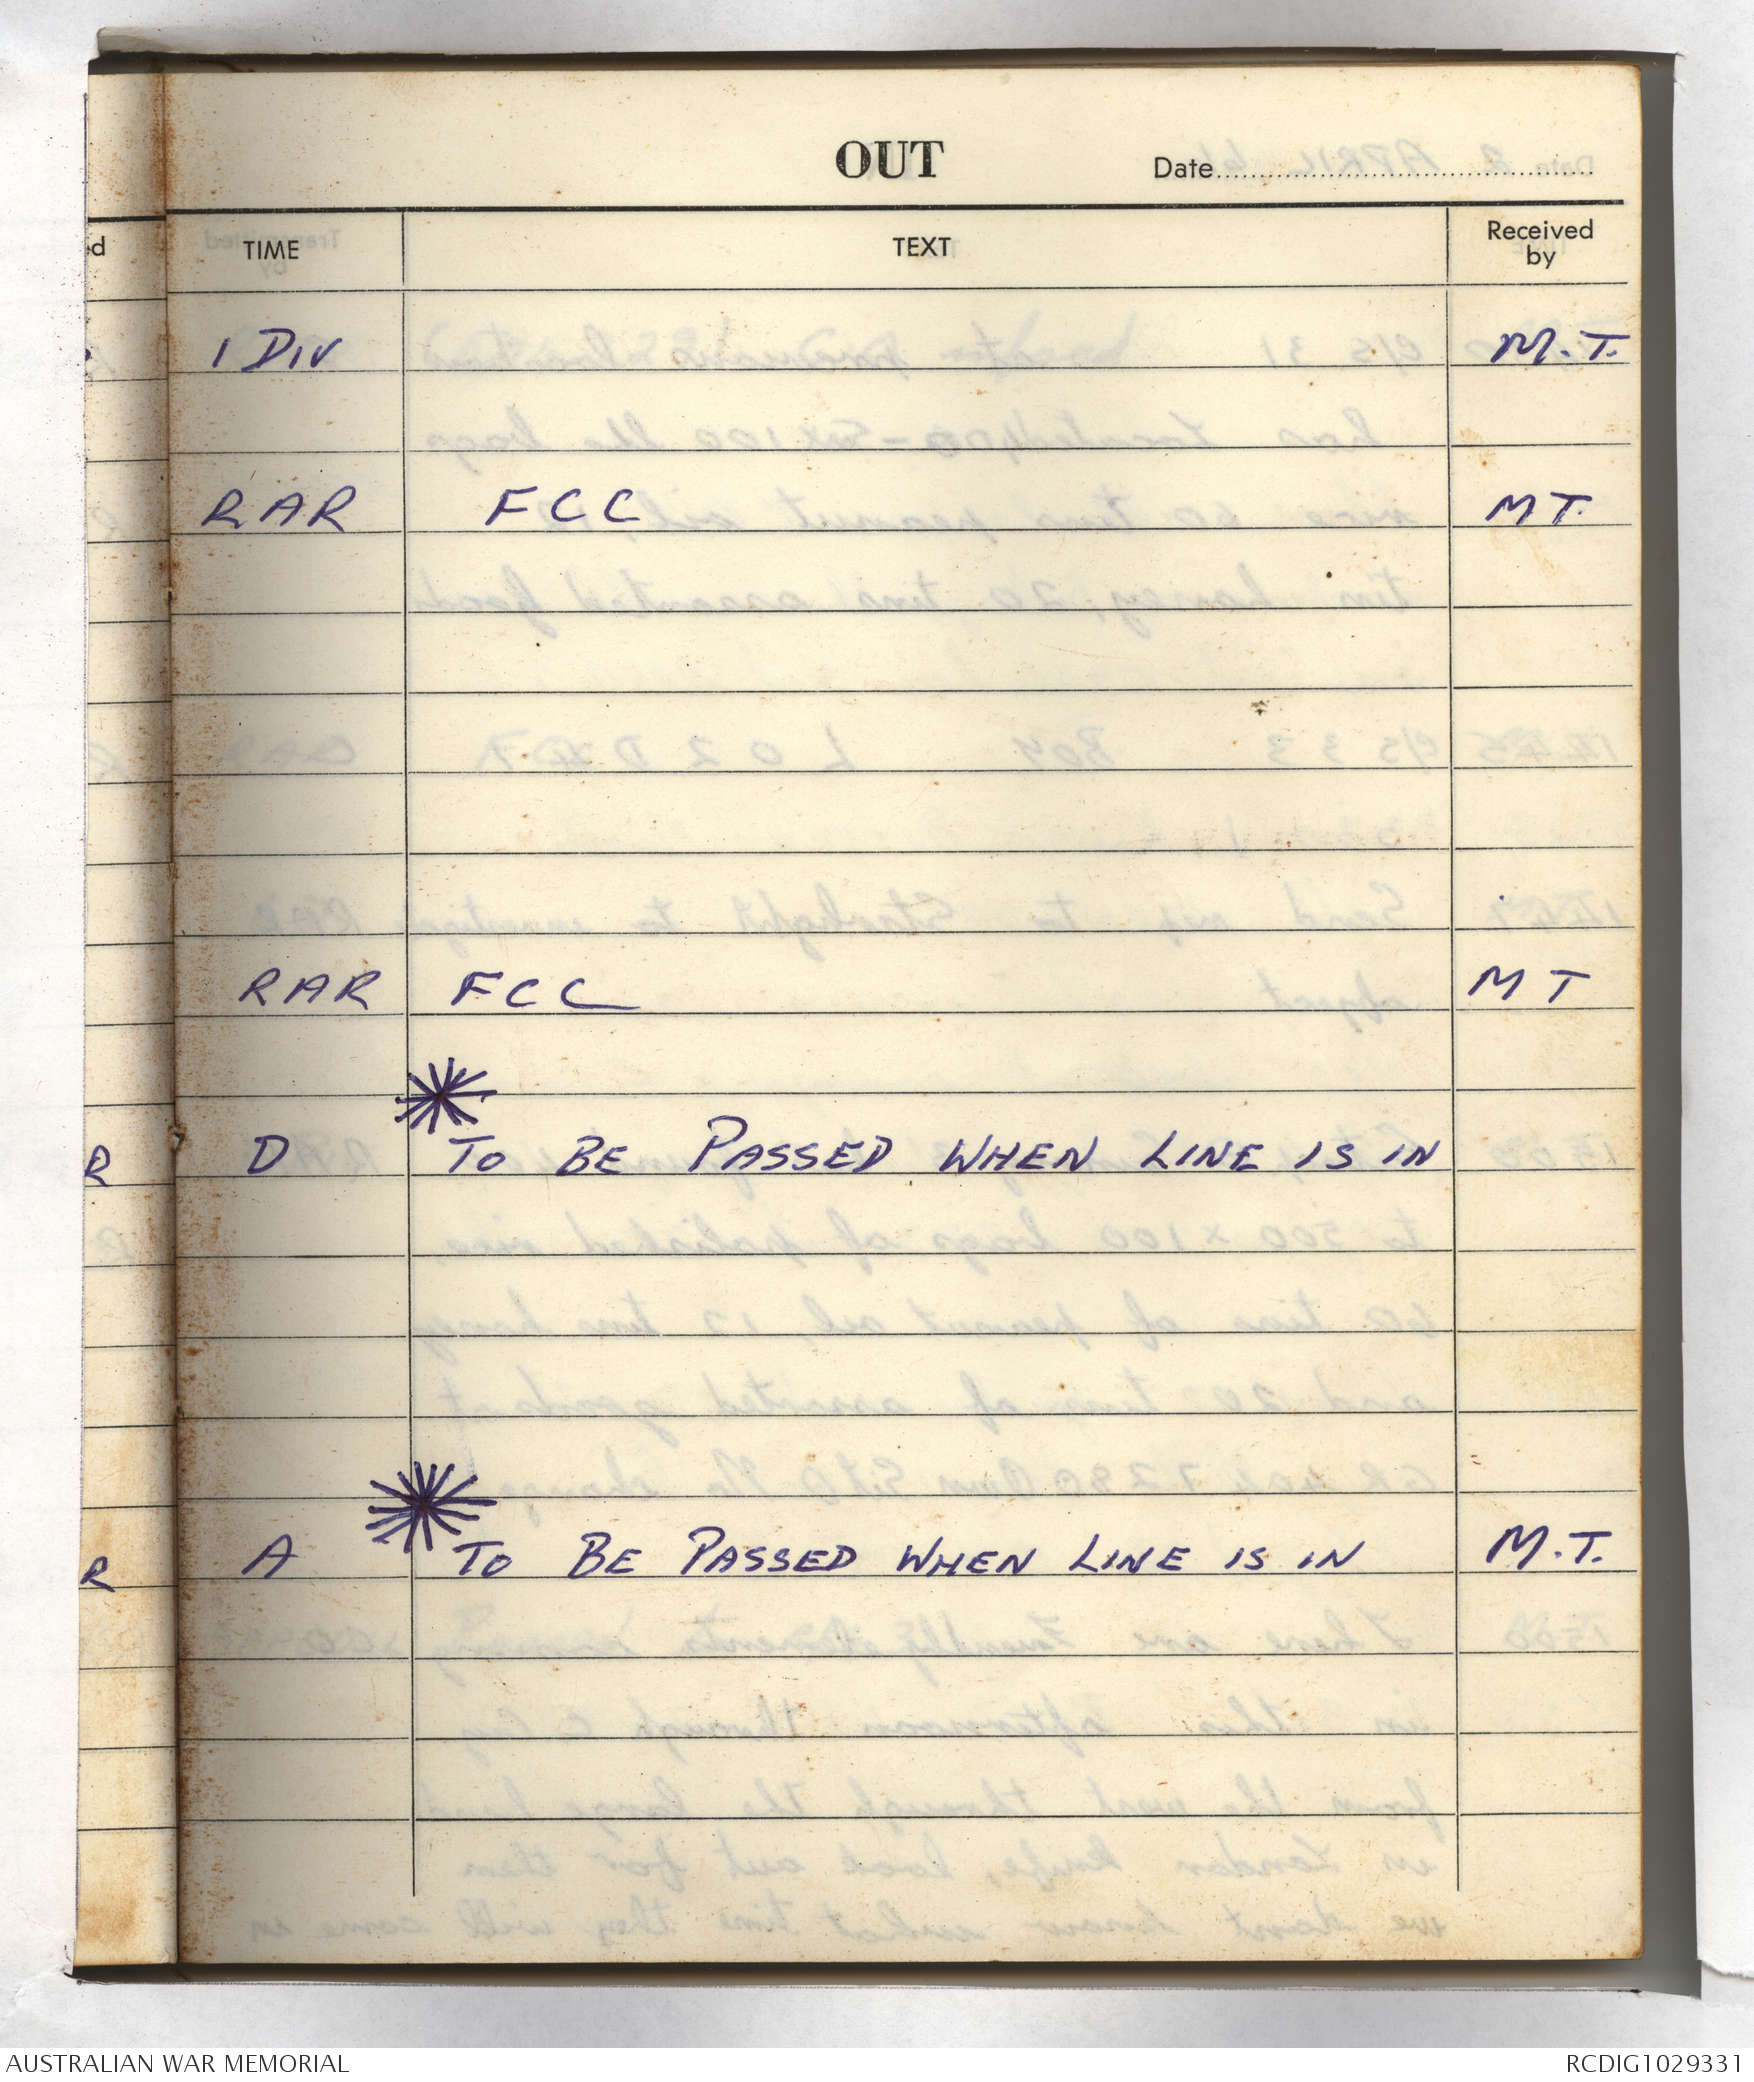 OUT
Date
TIME TEXT Received by
1 DIV M.T.
RAR FCC MT.
RAR FCC MT
R D TO BE PASSED WHEN LINE IS IN
R A TO BE PASSED WHEN LINE IS IN M.T.
AUSTRALIAN WAR MEMORIAL RCDIG1029331